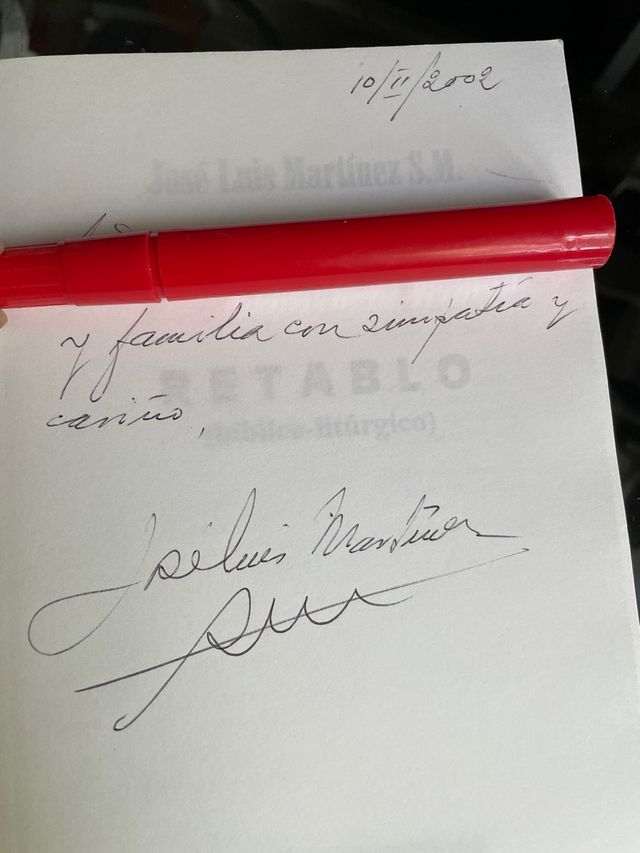 10/II/2002
José Luis Martínez S.M.
y familia con simpatía y
RETABLO
cariño,
(bíblico-litúrgico)
José Luis Martínez